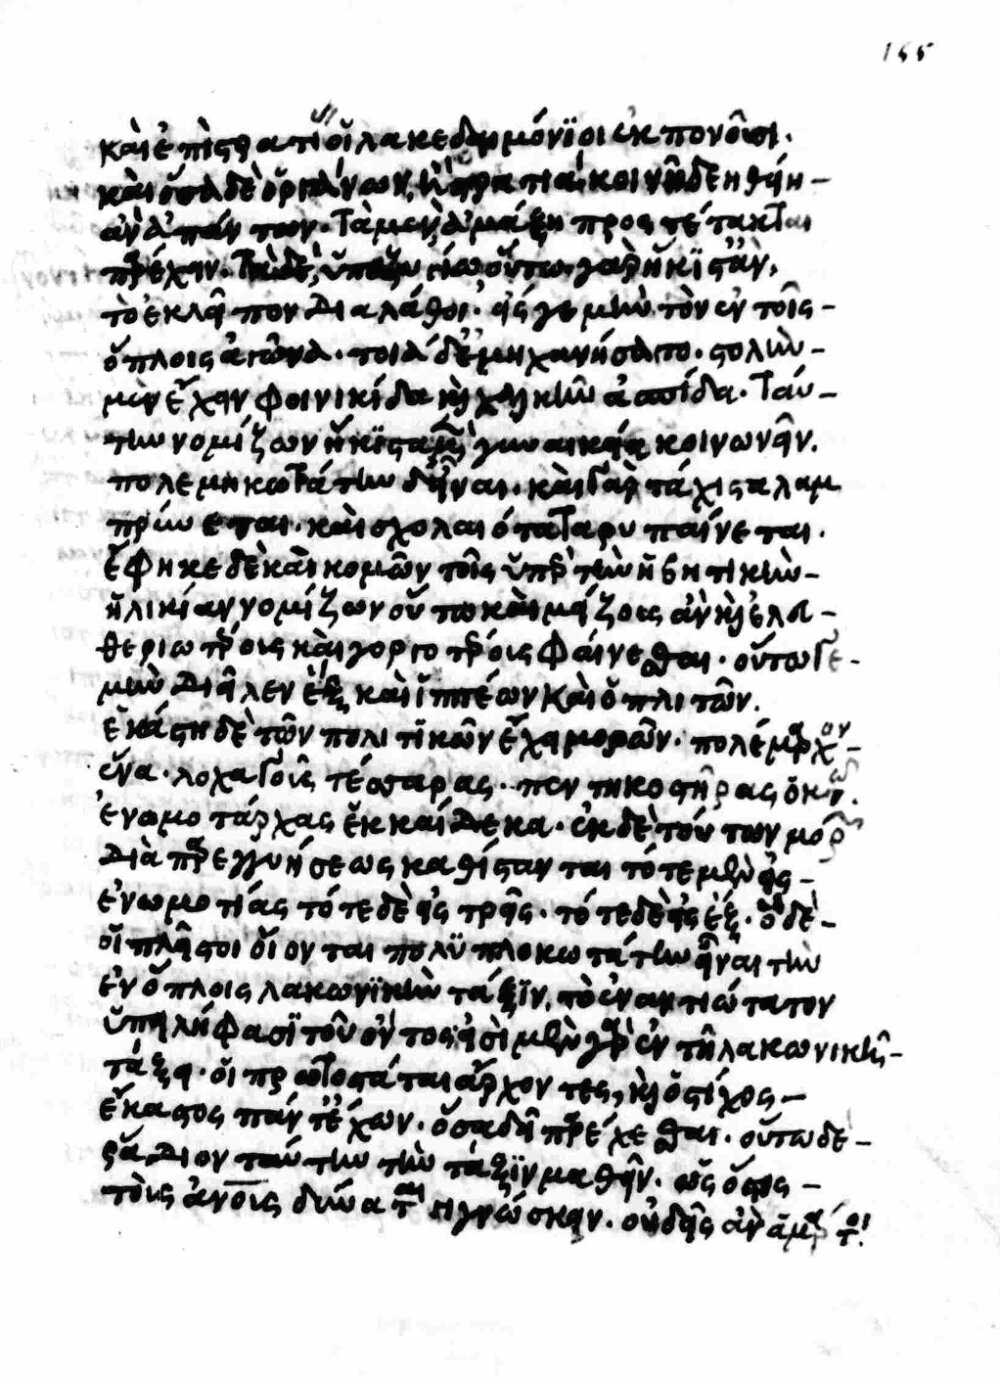 155
καὶ ἐπὶ στρατιᾶς οἱ λακεδαιμόνϊοι εὐπονοῦσι.
καὶ ὅσων δὲ ὀργάνων ἡ στρατιὰ κοινῇ δεηθείη
ἂν ἁπάντων. τὰ μὲν ἁμάξῃ προστέτακται
παρέχειν. τὰ δὲ, ὑποζυγίῳ οὕτω γὰρ ἥκϊστ' ἂν,
τὸ ἐκλεῖπον διαλάθοι. εἰς γε μὴν τὸν ἐν τοῖς
ὅπλοις ἀγῶνα. τοιάδ' ἐμηχανήσατο. στολὴν
μὲν ἔχειν φοινικίδα καὶ χαλκῆν ἀσπίδα. ταύ-
την νομίζων ἥκϊστα μὲν γυναικείᾳ κοινωνεῖν.
πολεμικωτάτην δ' εἶναι. καὶ γὰρ τάχιστα λαμ
πρύνεται. καὶ σχολαιότατα ῥυπαίνεται.
ἐφῆκε δὲ καὶ κομᾶν τοῖς ὑπὲρ τὴν ἡβητικὴν
ἡλικίαν νομίζων οὕτω καὶ μείζους ἂν καὶ ἐλευ-
θεριωτέροις καὶ γοργοτέροις φαίνεσθαι. οὕτω γε
μὴν διεῖλεν ἓξ καὶ ἱππέων καὶ ὁπλιτῶν.
ἑκάστη δὲ τῶν πολιτϊκῶν ἔχει μορῶν. πολέμαρχον
ἕνα. λοχαγοὺς τέσσαρας. πεντηκοστῆρας ὀκτώ.
ἐνωμοτάρχας ἑκκαίδεκα. ἐκ δὲ τούτων μορ
διὰ παρεγγυήσεως καθίστανται τότε μὲν εἰς
ἐνωμοτίας τότε δὲ εἰς τρεῖς. τότε δὲ εἰς ἕξ. ὃ δὲ
οἱ πλεῖστοι οἴονται πολϋπλοκωτάτην εἶναι τὴν
ἐν ὅπλοις λακωνϊκὴν τάξϊν, τὸ ἐναντιώτατον
ὑπειλήφασϊ τοῦ ὄντος. εἰσὶ μὲν γὰρ ἐν τῇ λακωνικῇ
τάξει. οἱ πρωτοστάται ἄρχοντες, καὶ ὁ στίχος
ἕκαστος πάντ' ἔχων. ὅσα δεῖ παρέχεσθαι. οὕτω δὲ
ῥᾴδιον ταύτην τὴν τάξϊν μαθεῖν. ὡς ὅστις
τοὺς ἀνους δύναται γιγνώσκειν. οὐδεὶς ἂν ἁμάρτοι.